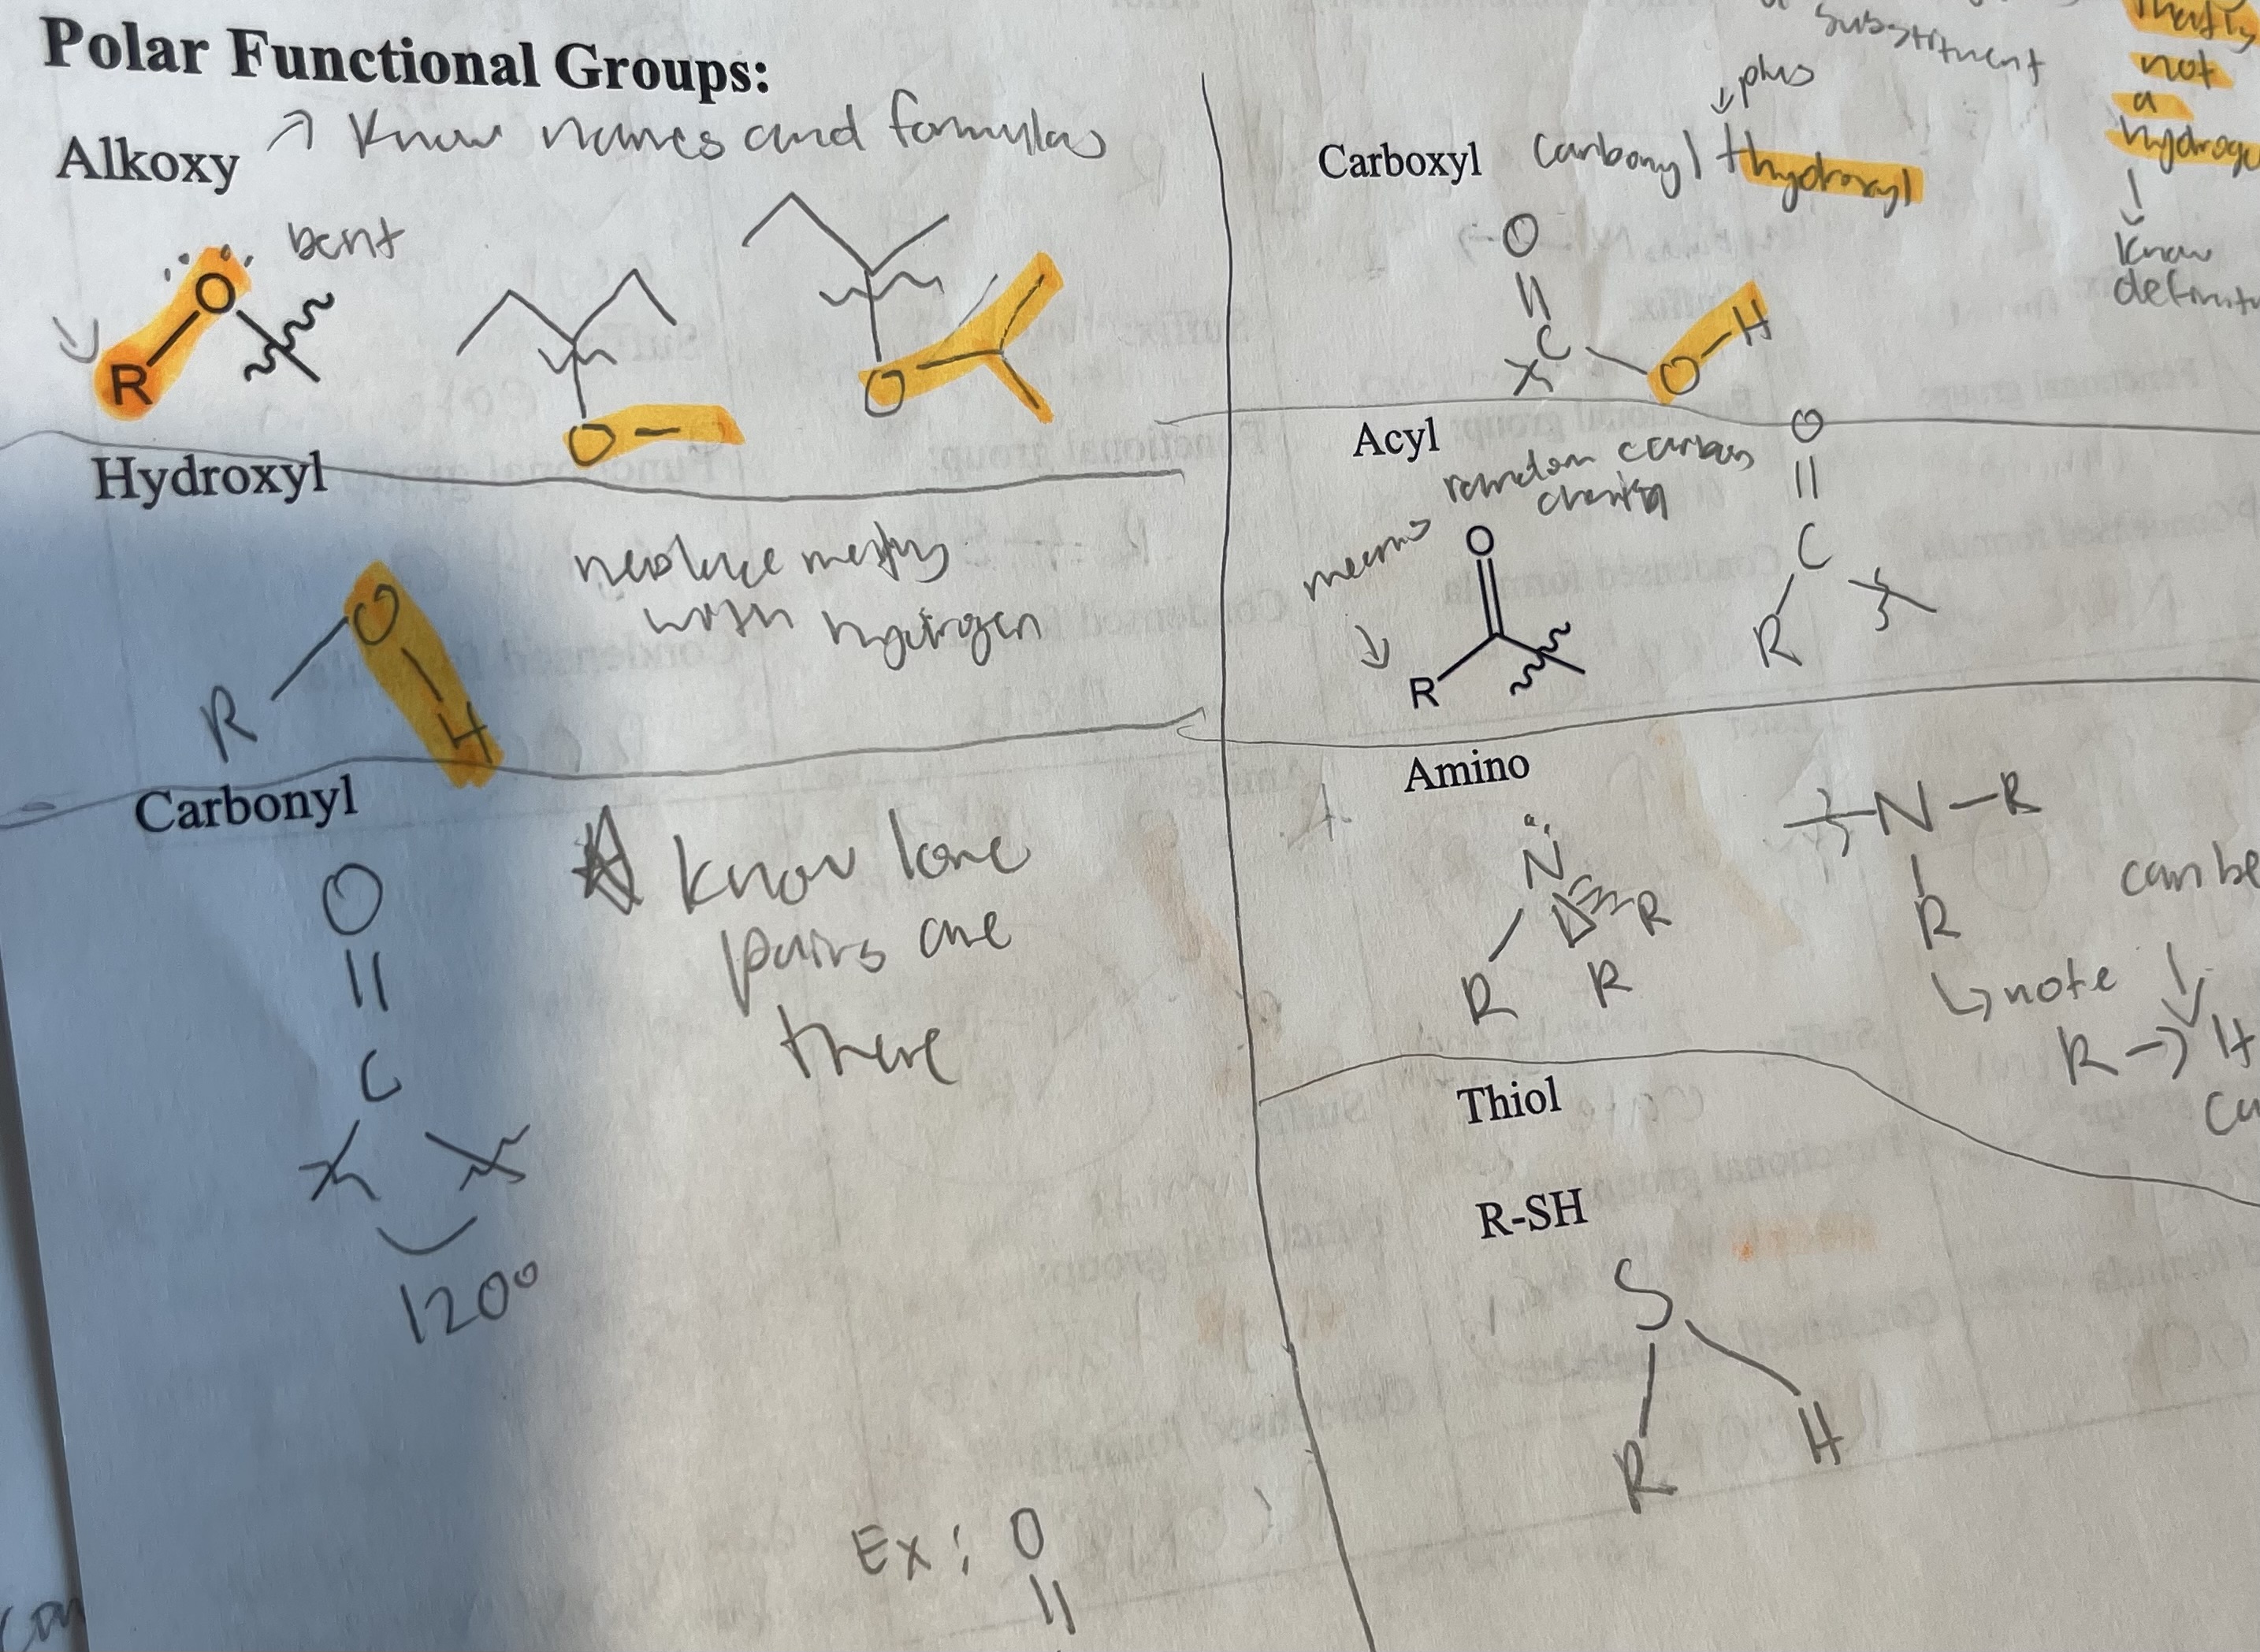 Polar Functional Groups:
↗ Know names and formulas
Alkoxy
bent
O
R
O
O
Hydroxyl
with hydrogen
O
R
H
Carbonyl
know lone
pairs are
there
O
C
120°
Ex: O
substituent
↓ plus
Carboxyl carbonyl + hydroxyl
not
a
know
O
C
O-H
Acyl
random carbon
means
O
R
O
C
R
Amino
N
R
R
R
N-R
R
can be
↳ note
R → H
Thiol
R-SH
S
R
H